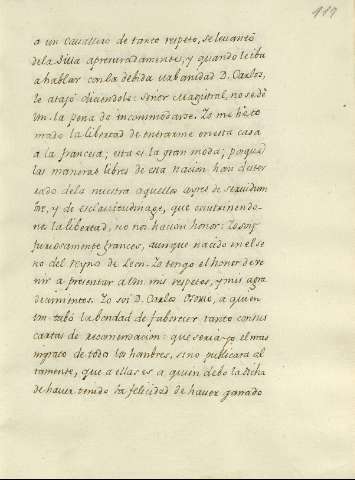 189
a un Cavallero de tanto respeto, se levantó
de la Silla apresuradamente, y quando le iba
a hablar con la debida urbanidad D. Carlos,
le atajó diciendole: Señor Magistral, no se dé
Vm. la pena de incommodarse. Yo me he to
mado la libertad de entrarme en esta casa
a la francesa; esta es la gran moda; porque
las maneras libres de esta nacion han dester
rado de la nuestra aquellos ayres de servidum
bre, y de esclavitudinage, que
la libertad, no nos hacian honor. Yo soy
furiosamente frances, aunque nacido en el se
no del Reyno de Leon. Yo tengo el honor de ve
nir a presentar a Vm. mis respetos, y mis agra
decimientos. Yo soi D. Carlos Osorio, a quien
Vm. tubo la bondad de faborecer tanto con sus
cartas de recomendacion: que seria yo el mas
ingrato de todos los hombres, si no publicara al
tamente, que a ellas es a quien debo la dicha
de haver tenido la felicidad de haver ganado